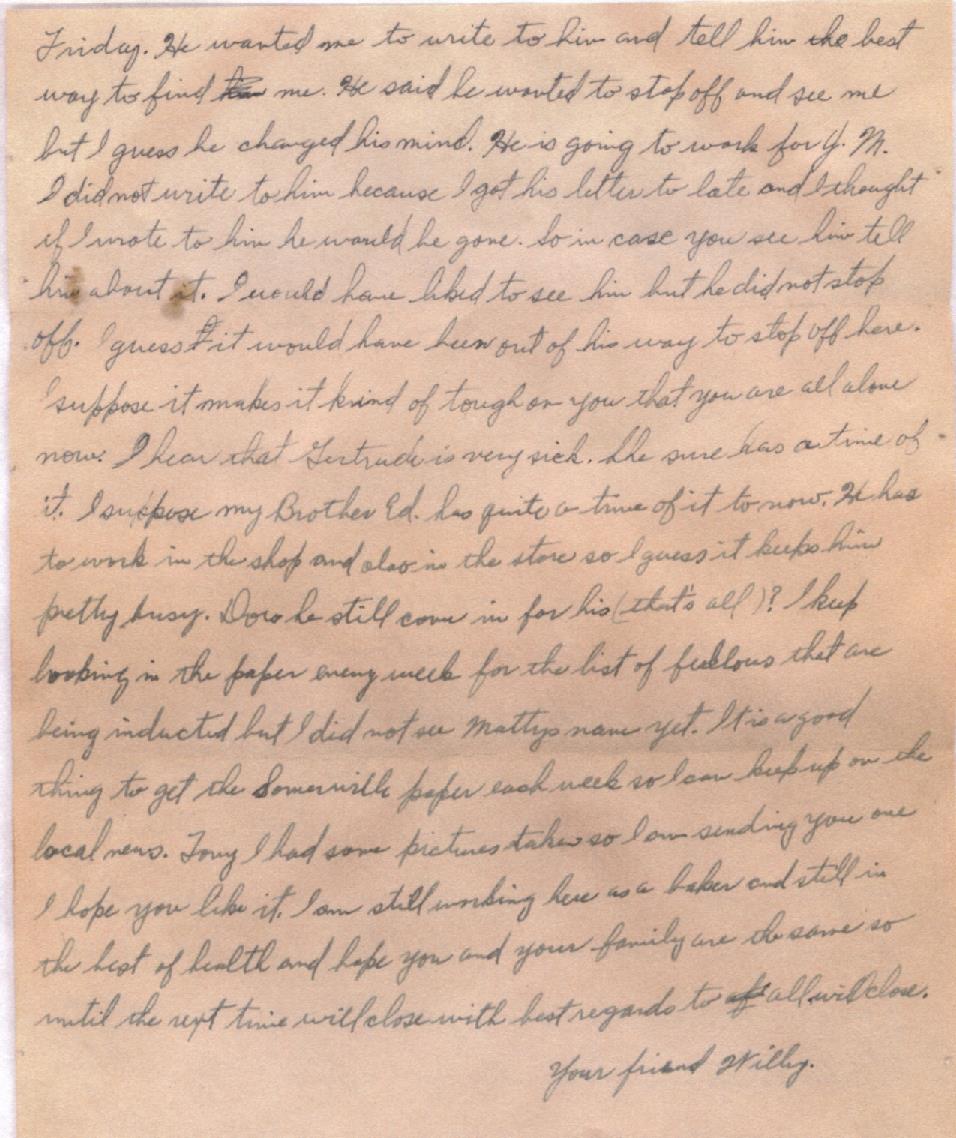 Friday. He wanted me to write to him and tell him the best
way to find me. He said he wanted to stop off and see me
but I guess he changed his mind. He is going to work for Y. M.
I did not write to him because I got his letter to late and I thought
if I wrote to him he would be gone. So in case you see him tell
him about it. I would have liked to see him but he did not stop
off. I guess it would have been out of his way to stop off here.
I suppose it makes it kind of tough on you that you are all alone
now. I hear that Gertrude is very sick. She sure has a time of
it. I suppose my Brother Ed. has quite a time of it to now. He has
to work in the shop and also in the store so I guess it keeps him
pretty busy. Does he still come in for his (that's all)? I keep
looking in the paper every week for the list of fellows that are
being inducted but I did not see Mattys name yet. It is a good
thing to get the Somerville paper each week so I can keep up on the
local news. Tony I had some pictures taken so I am sending you one
I hope you like it. I am still working here as a baker and still in
the best of health and hope you and your family are the same so
until the next time will close with best regards to all will close.
Your friend Willy.